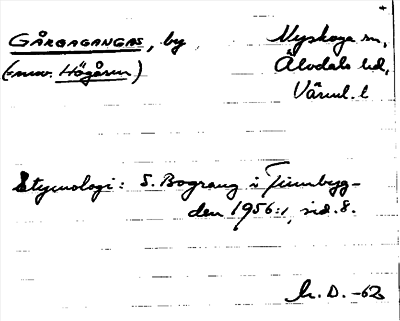 GÅRBAGANGAS, by
Nyskoga sn,
(= nuv. Högåsen)
Älvdals hd,
Värml. l
Etymologi: S. Bograng i Finnbyg-
den 1956:1, sid. 8.
h. D. -62